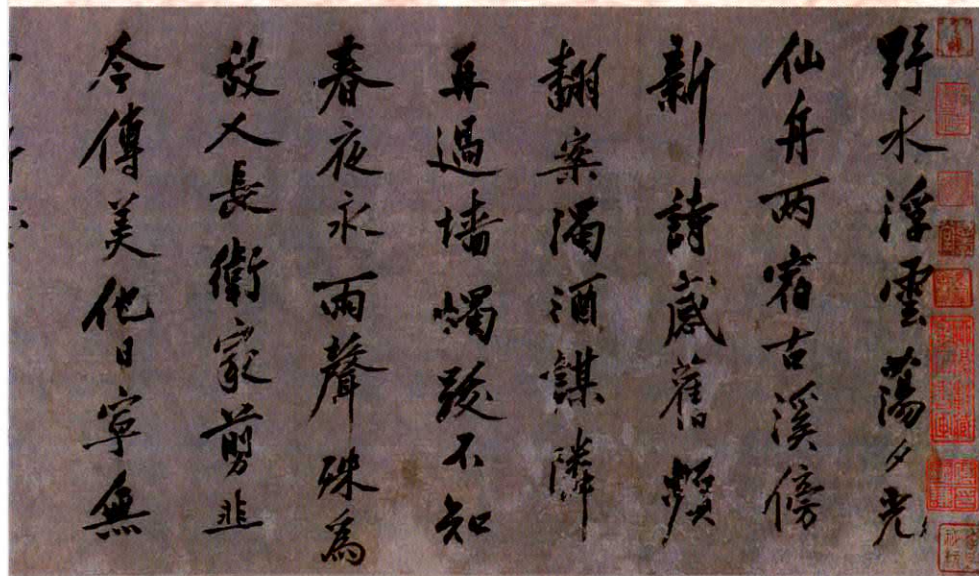 野水浮雲蕩夕光
仙舟两宿古溪傍
新詩感舊頻
翻案濁酒謀隣
再過墻燭跋不知
春夜永雨聲殊為
故人長衛家剪韭
今傳美他日寧無